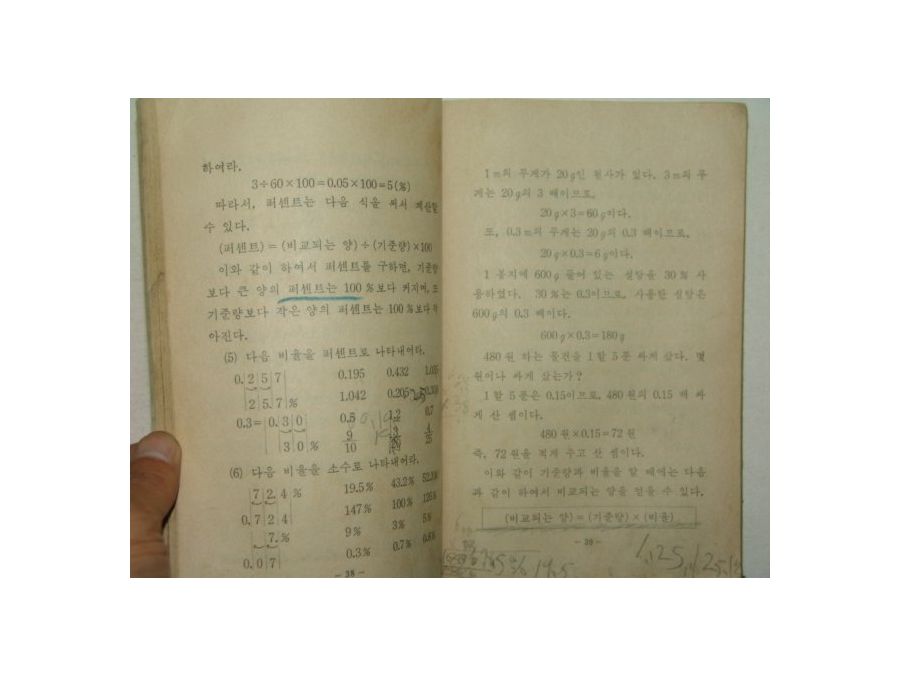 하여라.
3÷60×100=0.05×100=5(%)
따라서, 퍼센트는 다음 식을 써서 계산할
수 있다.
(퍼센트)=(비교되는 양)÷(기준량)×100
이와 같이 하여서 퍼센트를 구하면, 기준량
보다 큰 양의 퍼센트는 100%보다 커지며, 또
기준량보다 작은 양의 퍼센트는 100%보다 작
아진다.
(5) 다음 비율을 퍼센트로 나타내어라.
0.257 0.195 0.432
25.7% 1.042 0.205
0.3=0.30 0.5 1.2 0.7
30% 9/10 4/25
(6) 다음 비율을 소수로 나타내어라.
72.4% 19.5% 43.2%
0.724 147% 100%
7.% 9% 3% 5%
0.07 0.3% 0.7% 0.8%
- 38 -
1m의 무게가 20g인 철사가 있다. 3m의 무
게는 20g의 3 배이므로,
20g×3=60g이다.
또, 0.3m의 무게는 20g의 0.3 배이므로,
20g×0.3=6g이다.
1 봉지에 600g 들어 있는 설탕을 30% 사
용하였다. 30%는 0.3이므로, 사용한 설탕은
600g의 0.3 배이다.
600g×0.3=180g
480 원 하는 물건을 1할 5푼 싸게 샀다. 몇
원이나 싸게 샀는가?
1할 5푼은 0.15이므로, 480원의 0.15 배 싸
게 산 셈이다.
480원×0.15=72원
즉, 72원을 적게 주고 산 셈이다.
이와 같이 기준량과 비율을 알 때에는 다음
과 같이 하여서 비교되는 양을 얻을 수 있다.
(비교되는 양)=(기준량)×(비율)
- 39 -